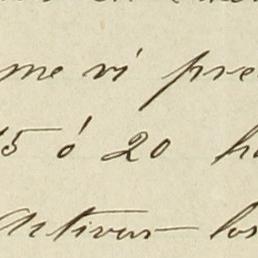 me vi pre
15 ó 20 ho
Activar los